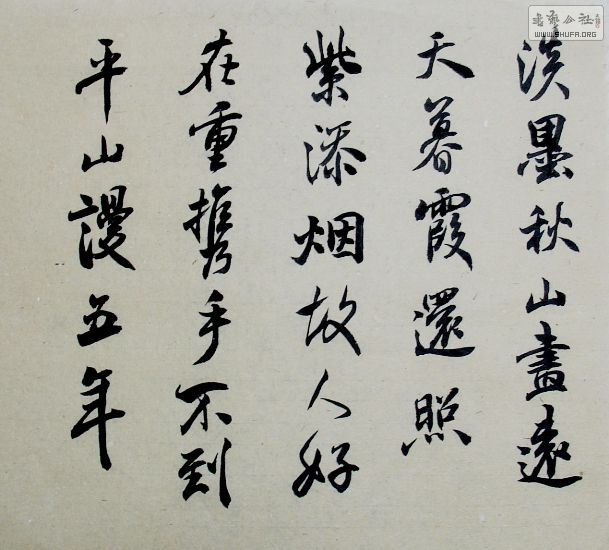 淡墨秋山畫遠
天暮霞還照
紫添烟故人好
在重携手不到
平山謾五年
書藝公社
WWW.SHUFA.ORG